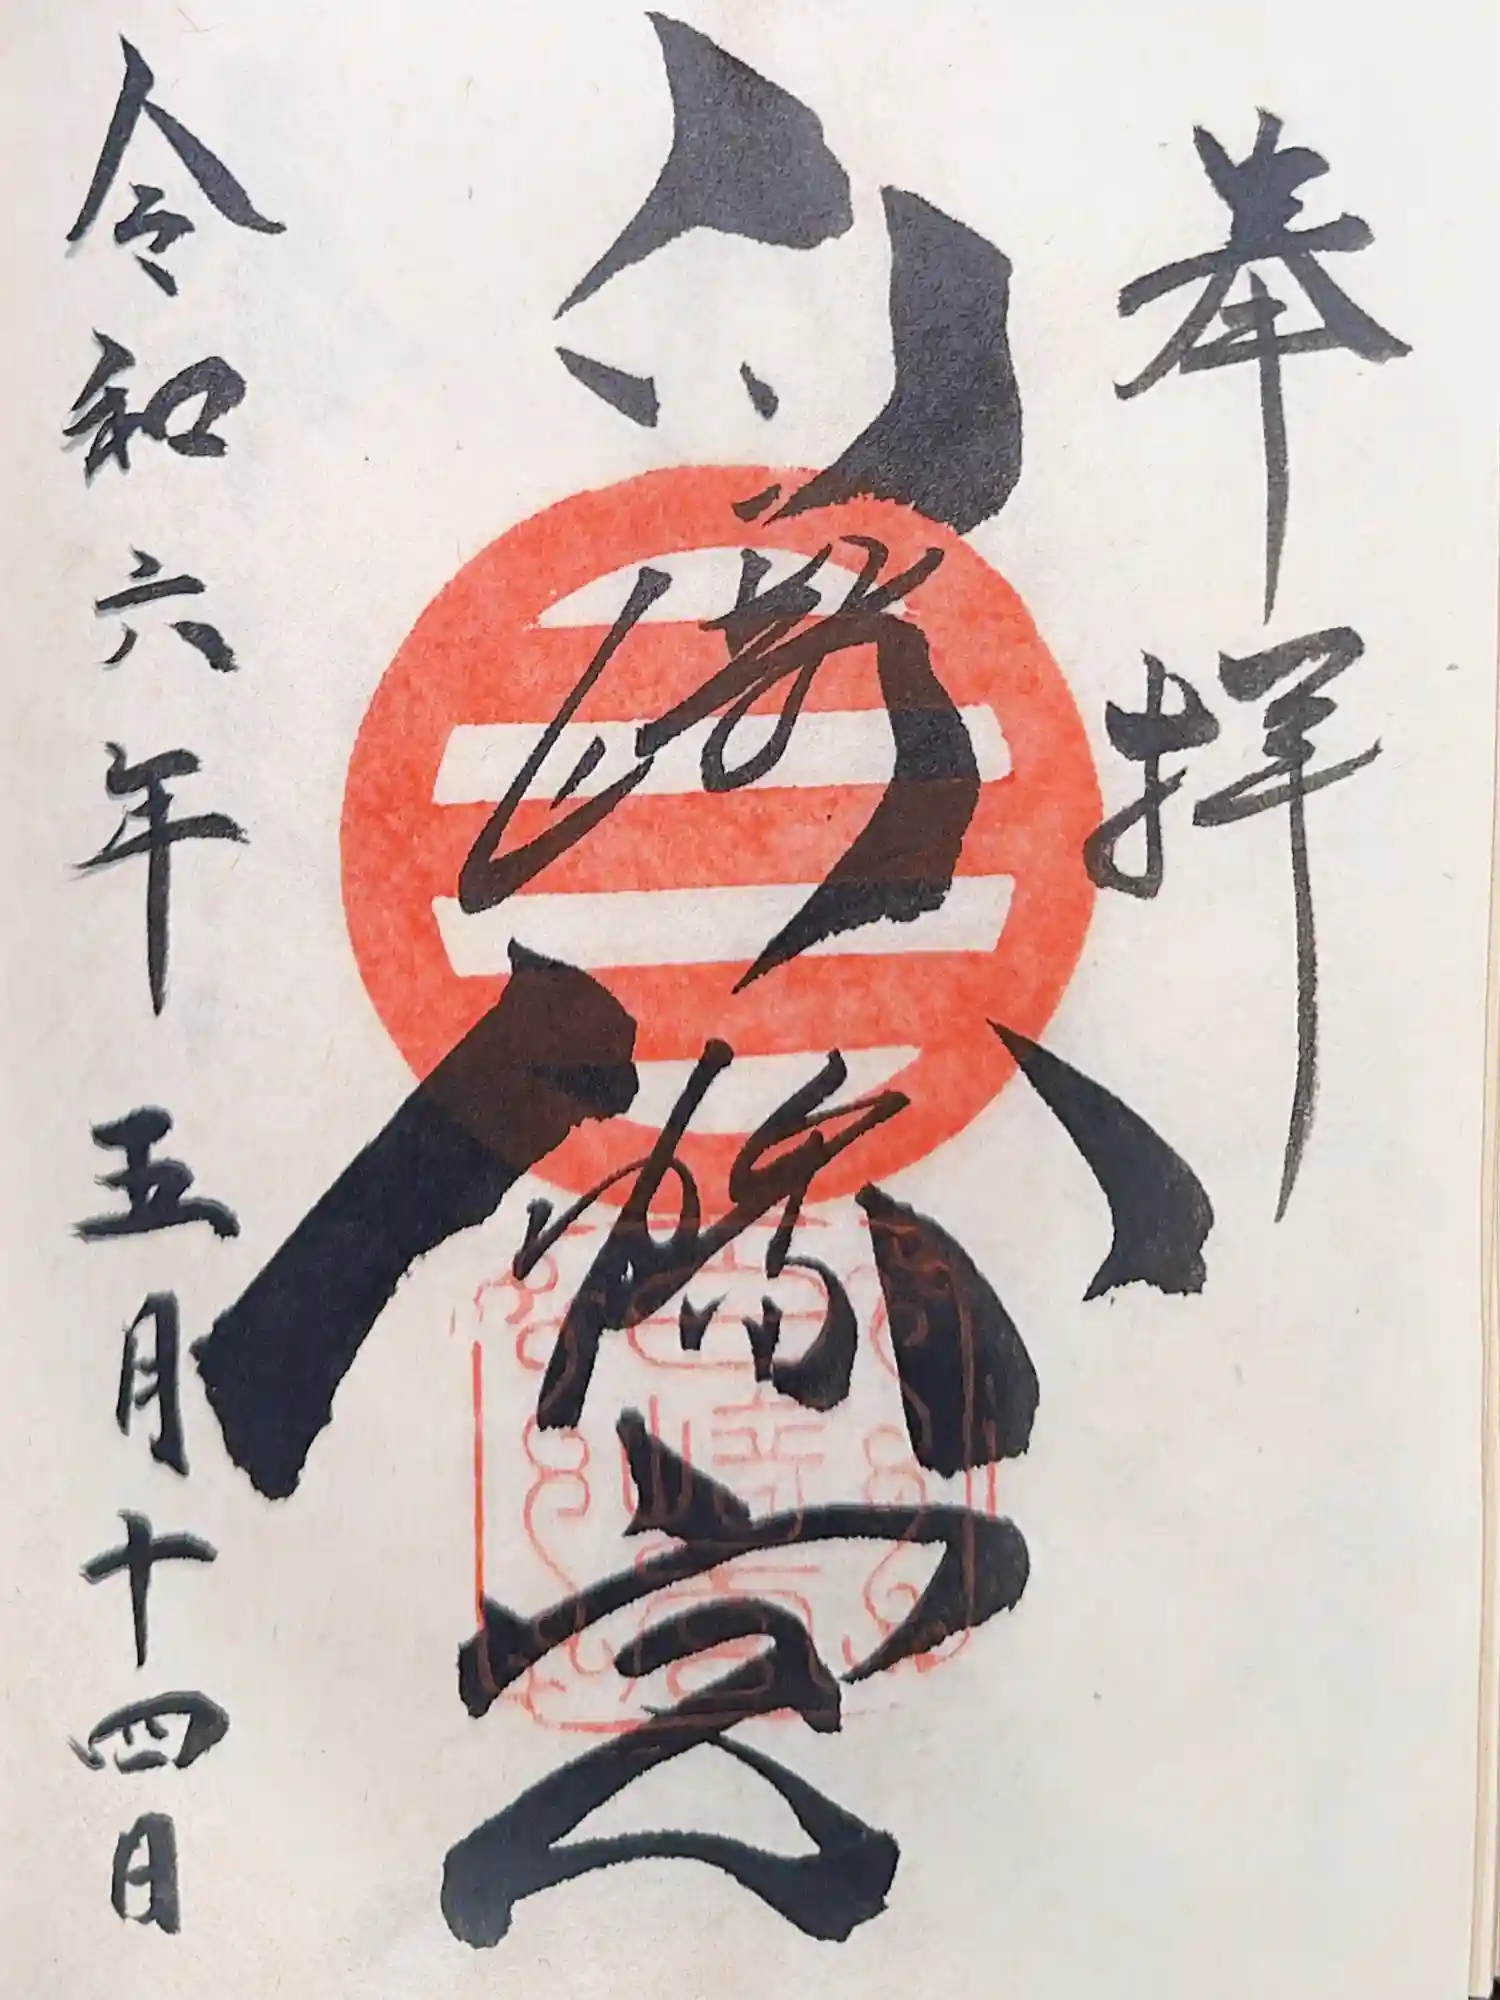 奉拝
白崎八幡宮
令和六年五月十四日